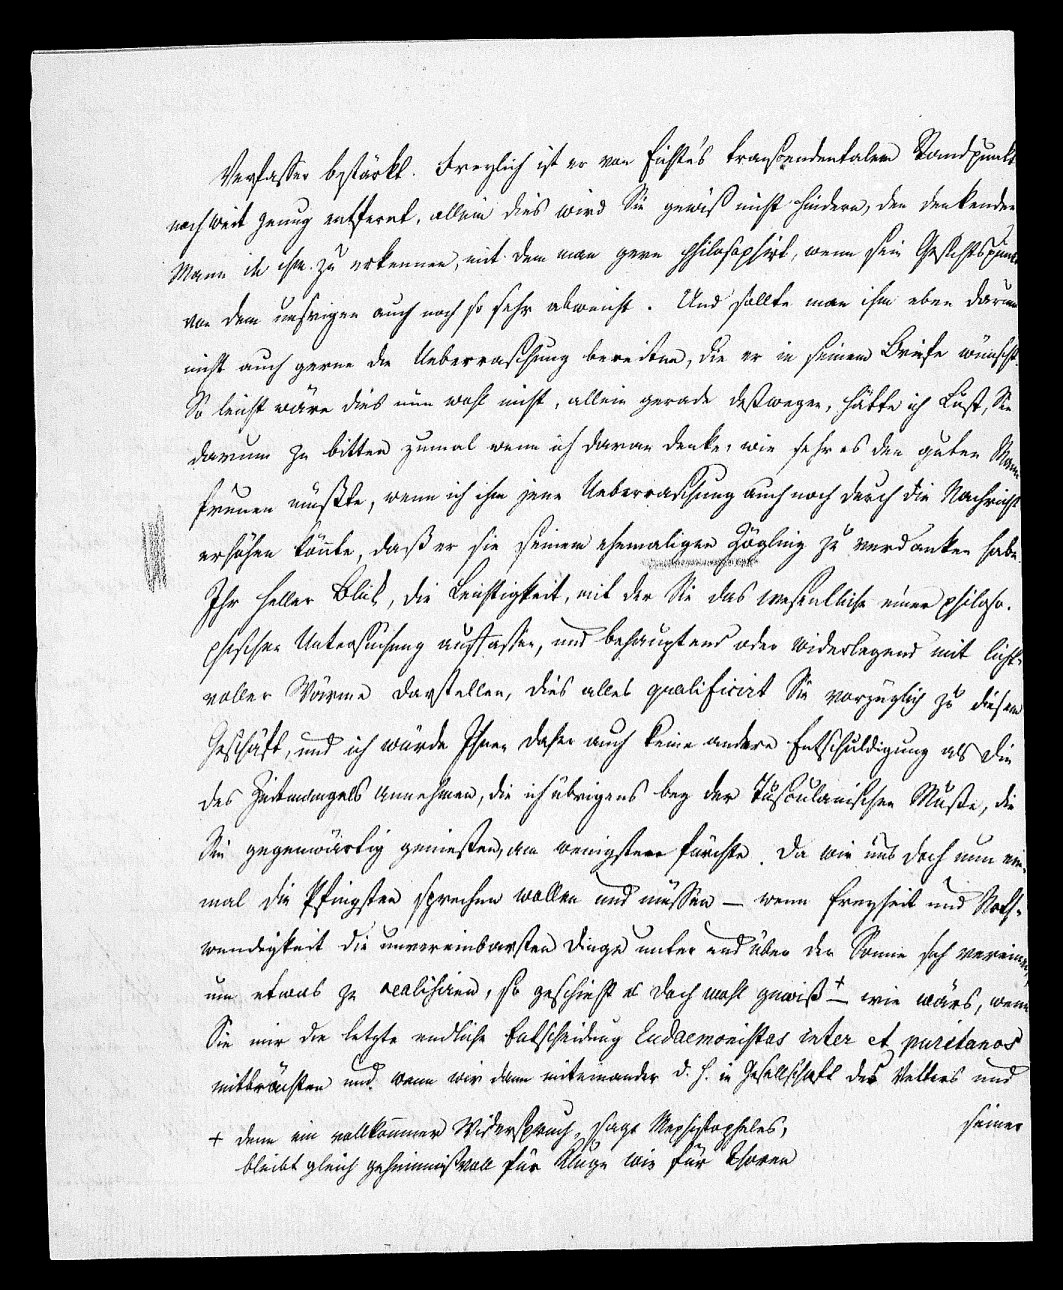 Verfasser bestärkt. Freylich ist er von Fichte's transcendentalem Standpunkt
noch weit genug entfernt, allein dies wird Sie gewiß nicht hindern, den denkenden
Mann in ihm zu erkennen, mit dem man gern philosophirt, wenn sein Gesichtspunkt
von dem unsrigen auch noch so sehr abweicht. Und sollte man ihm eben darum
nicht auch gerne die Ueberraschung bereiten, die er in seinem Briefe wünscht.
So leicht wäre dies nun wohl nicht, allein gerade deßwegen, hätte ich Lust, Sie
darum zu bitten zumal wenn ich daran denke, wie sehr es den guten Mann
freuen müßte, wenn ich ihm jene Ueberraschung auch noch durch die Nachricht
erhöhen könte, daß er sie seinem ehemaligen Zögling zu verdanken habe.
Ihr heller Blik, die Leichtigkeit, mit der Sie das wesentliche einer philoso-
phischen Untersuchung auffassen, und behauptend oder widerlegend mit licht-
voller Wärme darstellen, dies alles qualificirt Sie vorzüglich zu diesem
Geschäft, und ich würde Ihnen daher auch keine andere Entschuldigung als die
des Zeitmangels annehmen, die ich übrigens bey der Tusculanischen Muße, die
Sie gegenwärtig genießen, am wenigsten fürchte. Da wir uns doch nun ein-
mal die Pfingsten sprechen wollen und müssen — wenn Freyheit und Noth-
wendigkeit die unvereinbarsten Dinge unter und über der Sonne sich vereinen,
um etwas zu realisiren, so geschieht es doch wohl gewiß + — wie wärs, wenn
Sie mir die letzte endliche Entscheidung Eudaemonistas inter et puritanos
mitbrächten und wenn wir dann miteinander d. h. in Gesellschaft des Vetters und
seiner
+ denn ein vollkommner Widerspruch, sagt Mephistopheles,
bleibt gleich geheimnißvoll für Kluge wie für Thoren